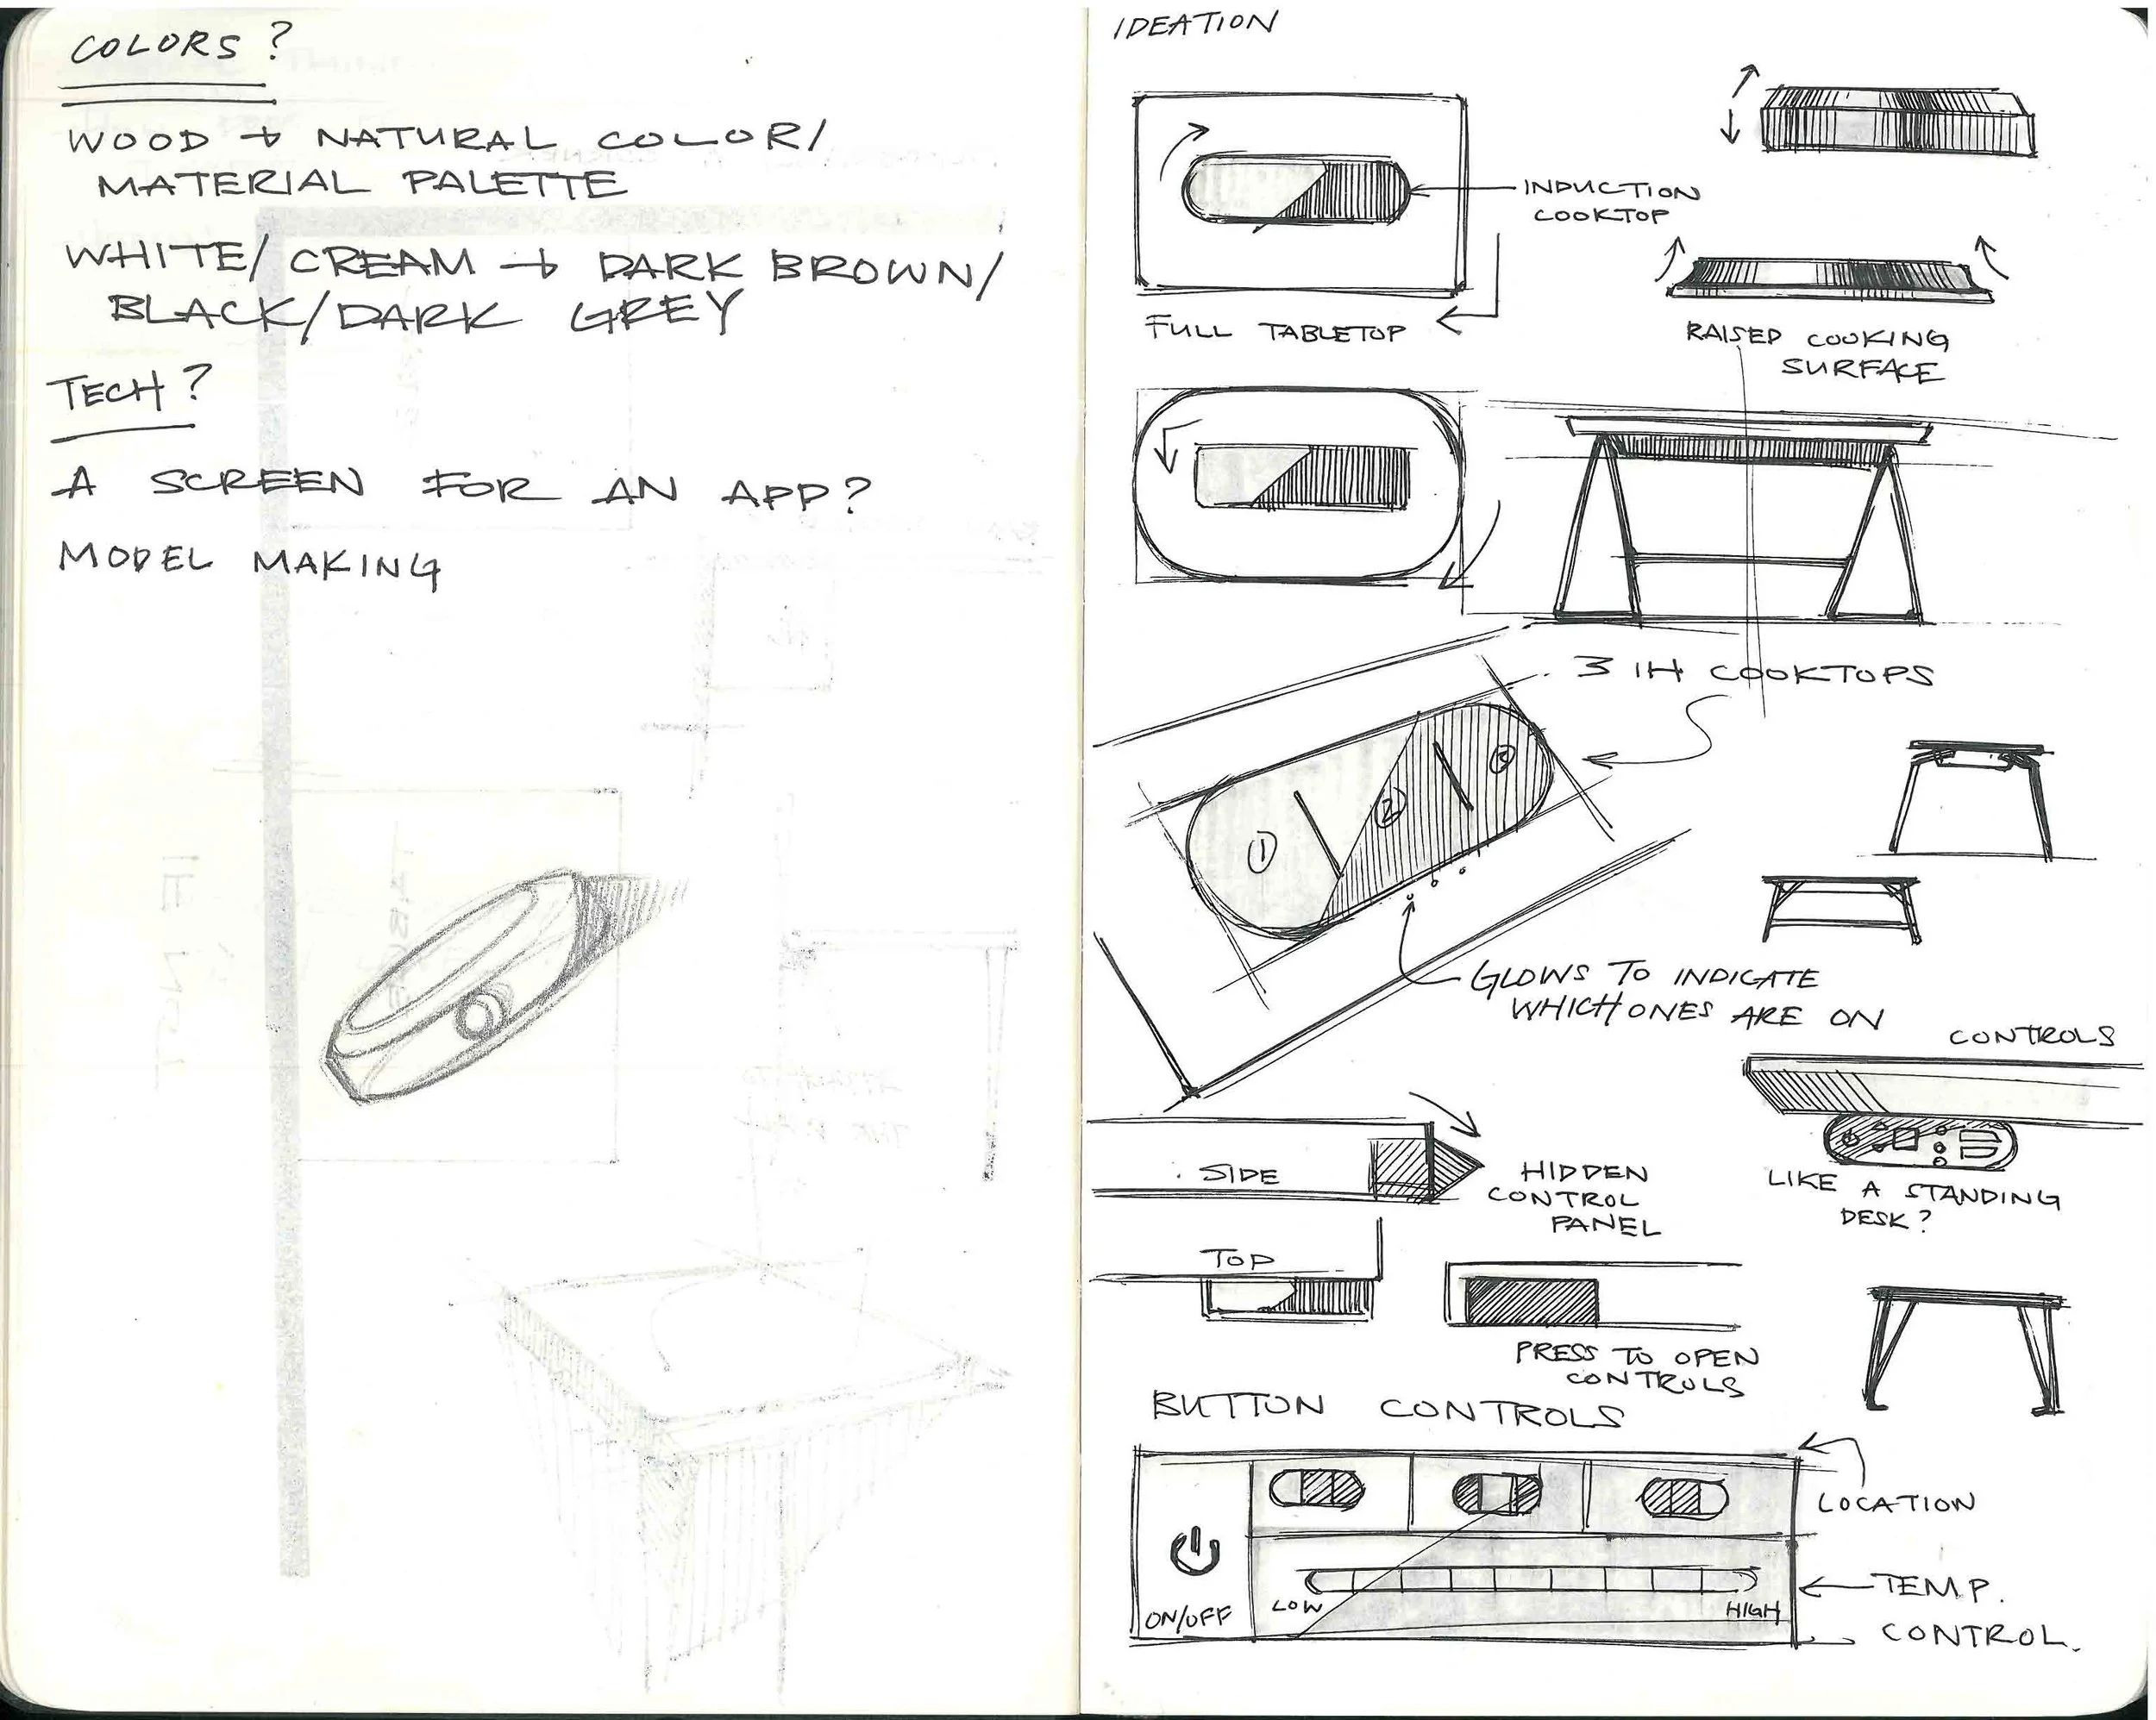 COLORS?
WOOD + NATURAL COLOR/
MATERIAL PALETTE
WHITE/CREAM + DARK BROWN/
BLACK/DARK GREY
TECH?
A SCREEN FOR AN APP?
MODEL MAKING
IDEATION
INDUCTION
COOKTOP
FULL TABLETOP
RAISED COOKING
SURFACE
3 IH COOKTOPS
1
2
3
GLOWS TO INDICATE
WHICH ONES ARE ON
CONTROLS
LIKE A STANDING
DESK?
SIDE
HIDDEN
CONTROL
PANEL
TOP
PRESS TO OPEN
CONTROLS
BUTTON CONTROLS
LOCATION
ON/OFF
LOW
HIGH
TEMP.
CONTROL.